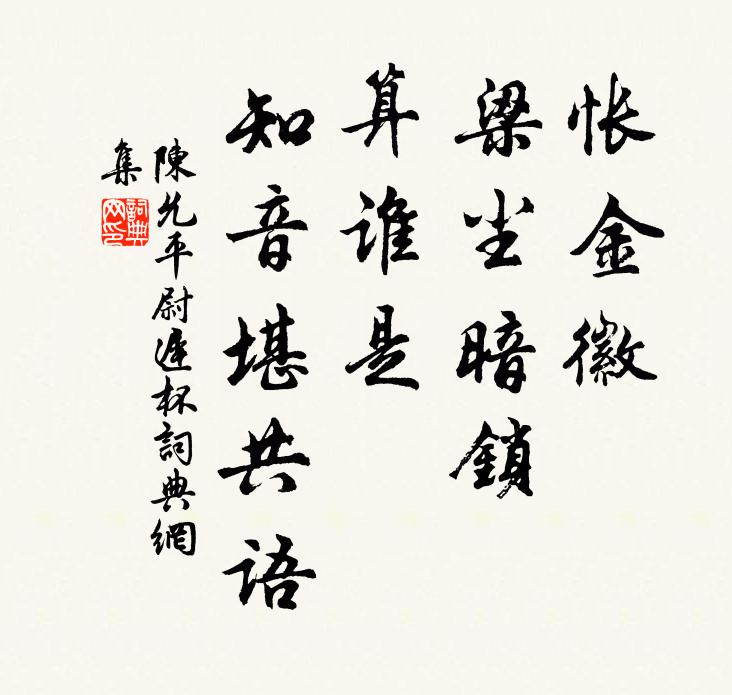 怅金徽
梁尘暗鎖
算谁是
知音堪共语
陳允平尉遲杯詞典網
集
詞典網印